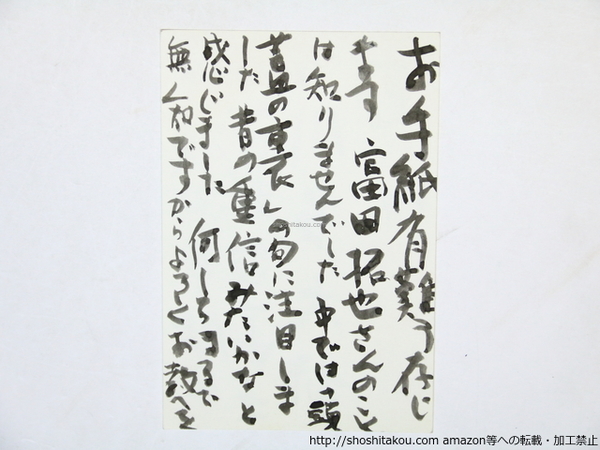 お手紙有難う存じ
ます 富田拓也さんのこと
は知りませんでした 中では「頭
蓋の裏」の句に注目しま
した 昔の重信みたいかなと
感じました 何しろまるで
無知ですからよろしくお教へを
shoshitakou.com
http://shoshitakou.com amazon等への転載・加工禁止